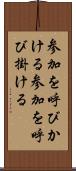 参加を呼びか
ける参加を呼
び掛ける